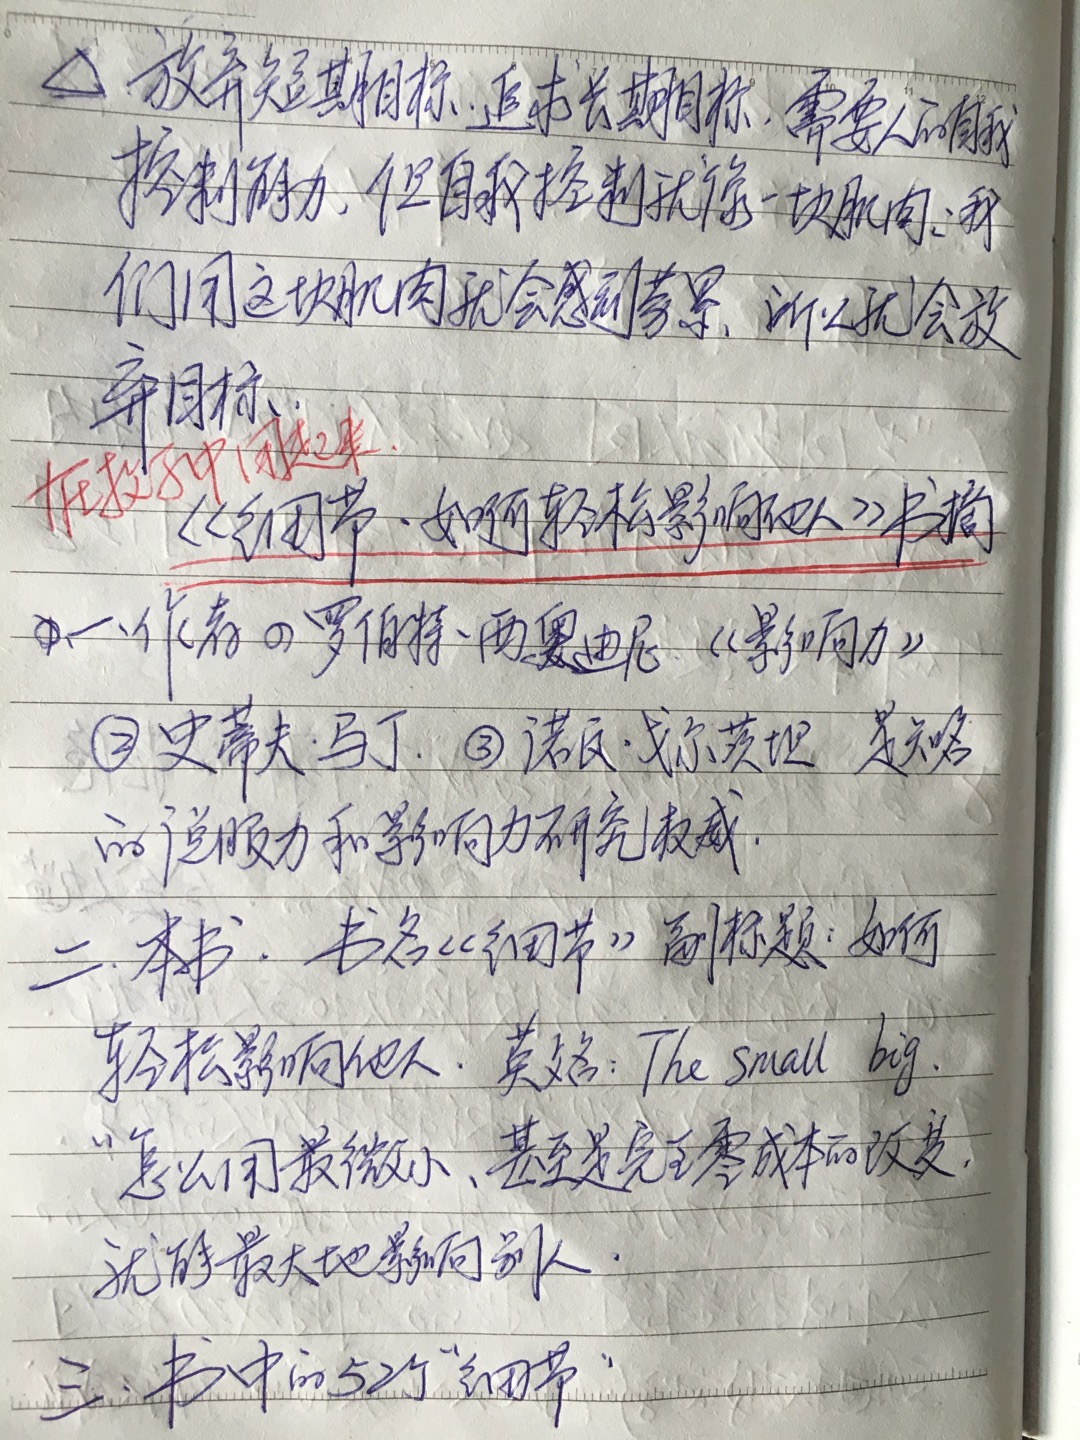 △ 放弃短期目标、追求长期目标,需要人的自我
控制能力、但自我控制就像一块肌肉:我
们用这块肌肉就会感到劳累、所以就会放
弃目标、
在投资中用起来.
《细节·如何轻松影响他人》书摘
一、作者 ① 罗伯特·西奥迪尼 《影响力》
② 史蒂夫·马丁. ③ 诺瓦·戈尔茨坦 是知名
的说服力和影响力研究权威.
二.本书. 书名《细节》副标题:如何
轻松影响他人. 英文名:The small big.
“怎么用最微小、甚至是完全零成本的改变.
就能最大地影响别人.
三.书中的52个“细节”